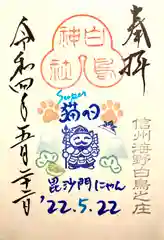 奉拝
信州海野白鳥之庄
白鳥
神社
Super
猫の日
毘沙門にゃん
'22.5.22
令和四年五月二十二日